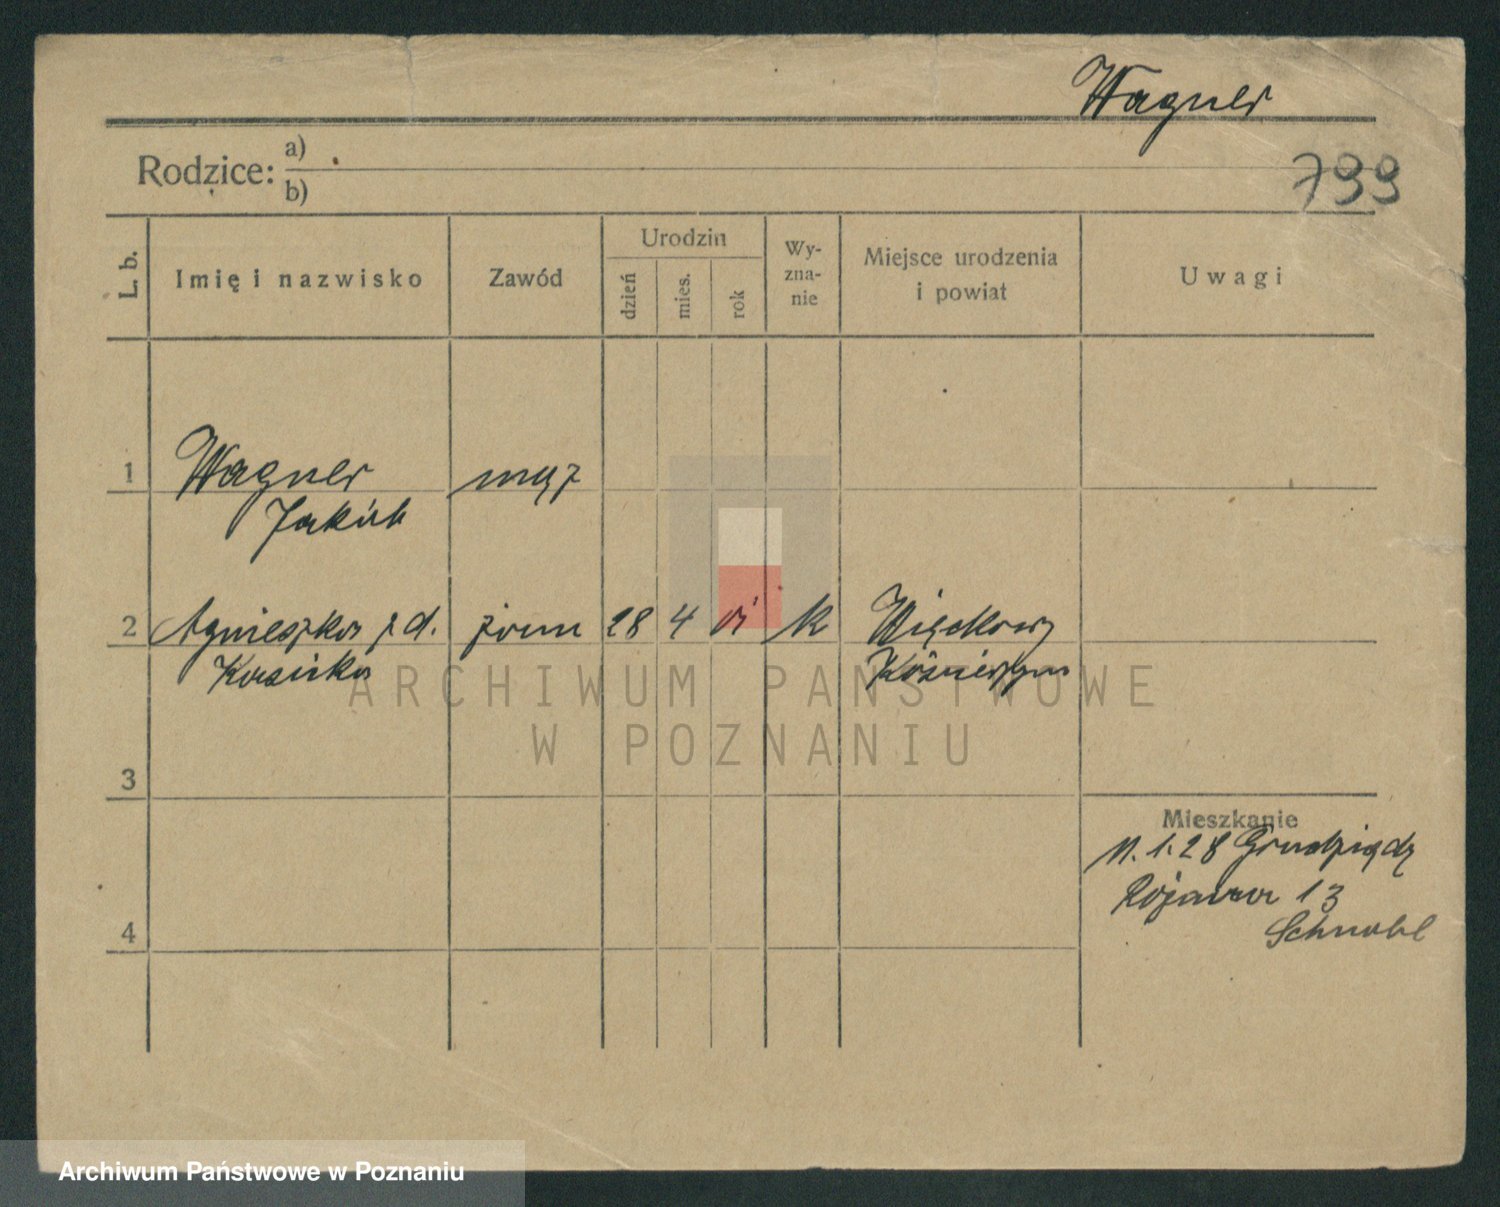 Wagner
Rodzice: a)
b)
799
L. b.
Imię i nazwisko
Zawód
Urodzin
dzień
mies.
rok
Wy-
zna-
nie
Miejsce urodzenia
i powiat
Uwagi
1
Wagner
Jakób
mąż
2
Agnieszka z d.
żona
28
4
k
Więckowy
ARCHIWUM PAŃSTWOWE
W POZNANIU
3
Mieszkanie
11.1.28 Grudziądz
13
Schnabl
4
Archiwum Państwowe w Poznaniu